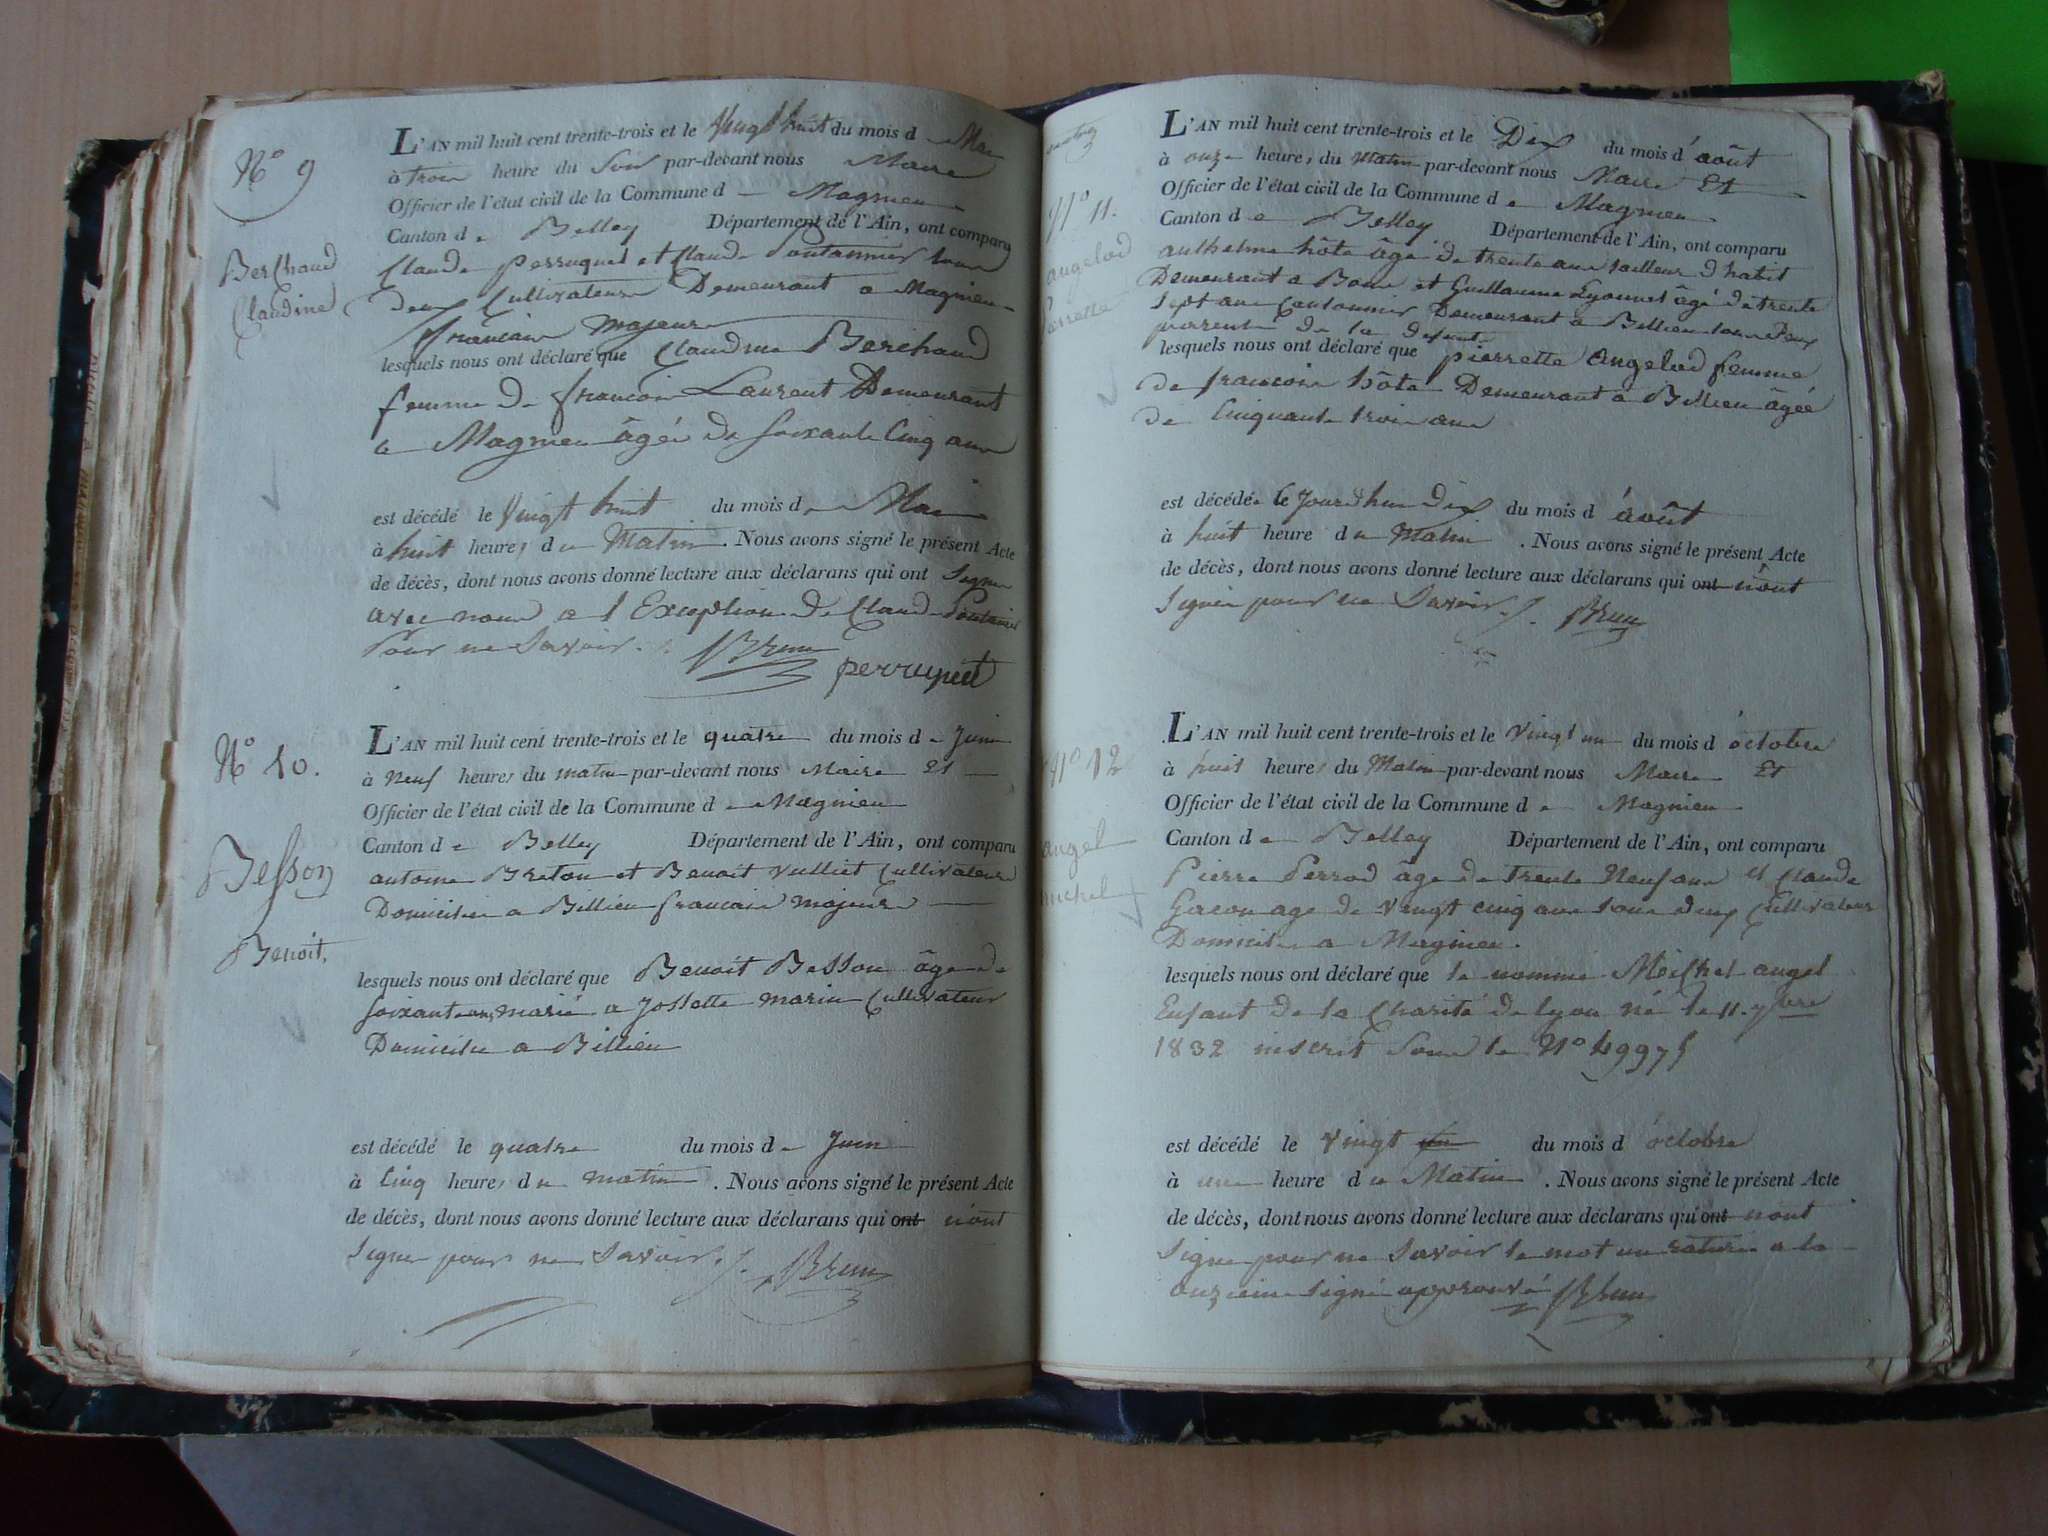 N° 9
Berthaud
Claudine
L'AN mil huit cent trente-trois et le Vingt huit du mois de Mai
à trois heure du Soir par-devant nous Maire
Officier de l'état civil de la Commune de Magnieu
Canton de Belley Département de l'Ain, ont comparu
Claude perruquet et Claude Pontannier tous
deux Cultivateurs Demeurant a Magnieu
francais majeurs
lesquels nous ont déclaré que Claudine Berthaud
femme de francois Laurent Demeurant
a Magnieu âgée de soixante Cinq ans
est décédé le Vingt huit du mois de Mai
à huit heures du Matin. Nous avons signé le présent Acte
de décès, dont nous avons donné lecture aux déclarans qui ont signer
avec nous a l'Exception de Claude
Pour ne Savoir. Brun
perruquet
N° 10.
Besson
Benoit.
L'AN mil huit cent trente-trois et le quatre du mois de Juin
à Neuf heures du matin par-devant nous Maire Et
Officier de l'état civil de la Commune de Magnieu
Canton de Belley Département de l'Ain, ont comparu
antoine Breton et Benoit Vulliet Cultivateurs
Domicilie a Billieu francais majeurs
lesquels nous ont déclaré que Benoit Besson âge de
soixante ans, marié a Josette marin Cultivateur
Domicilie a Billieu
est décédé le quatre du mois de Juin
à Cinq heures du matin. Nous avons signé le présent Acte
de décès, dont nous avons donné lecture aux déclarans qui ont n'ont
signer pour ne Savoir. Brun
N° 11.
angelod
L'AN mil huit cent trente-trois et le Dix du mois d'août
à onze heures du Matin par-devant nous Maire Et
Officier de l'état civil de la Commune de Magnieu
Canton de Belley Département de l'Ain, ont comparu
anthelme hôte âgé de trente ans tailleur d'habit
Demeurant a Bons et Guillaume Lyonnet âgé de trente
sept ans Cantonnier Demeurant a Billieu tous deux
parents de la defunte
lesquels nous ont déclaré que pierrette angelod femme
de francois hôte Demeurant à Billieu âgée
de Cinquante trois ans
est décédée le Jourd'hui Dix du mois d'août
à huit heure du Matin. Nous avons signé le présent Acte
de décès, dont nous avons donné lecture aux déclarans qui ont n'ont
signer pour ne Savoir. Brun
N° 12
angel
michel
L'AN mil huit cent trente-trois et le vingt un du mois d'octobre
à huit heures du Matin par-devant nous Maire Et
Officier de l'état civil de la Commune de Magnieu
Canton de Belley Département de l'Ain, ont comparu
Pierre Perrod âge de Trente Neuf ans et Claude
Gacon age de vingt cinq ans tous deux Cultivateurs
Domicilie a Magnieu.
lesquels nous ont déclaré que le nommé Meichel angel
Enfant de la Charité de lyon né le 11. 7bre
1832 inscrit sous le N° 49975
est décédé le vingt un du mois d'octobre
à une heure du Matin. Nous avons signé le présent Acte
de décès, dont nous avons donné lecture aux déclarans qui ont n'ont
signer pour ne Savoir le mot un raturé a la
onzieme ligne approuvé Brun